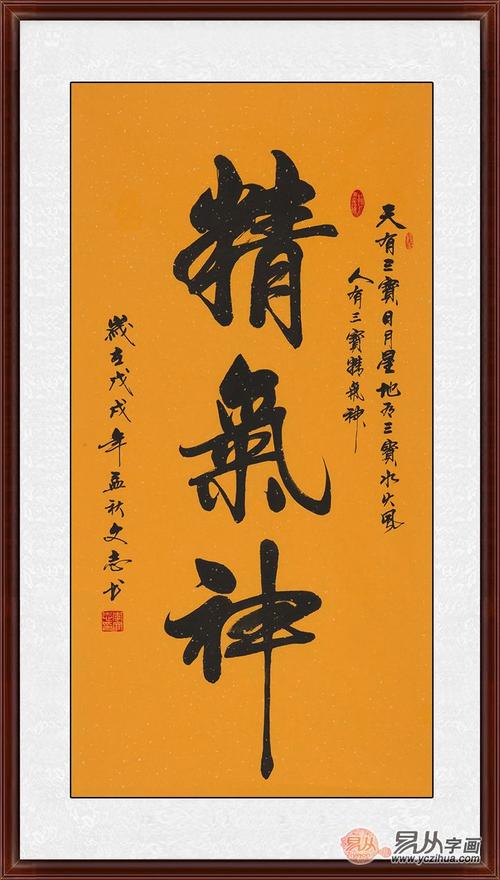 天有三寶日月星地有三寶水火風
人有三寶精氣神
精氣神
歲在戊戌年孟秋文志書
易从字画
www.yczihua.com